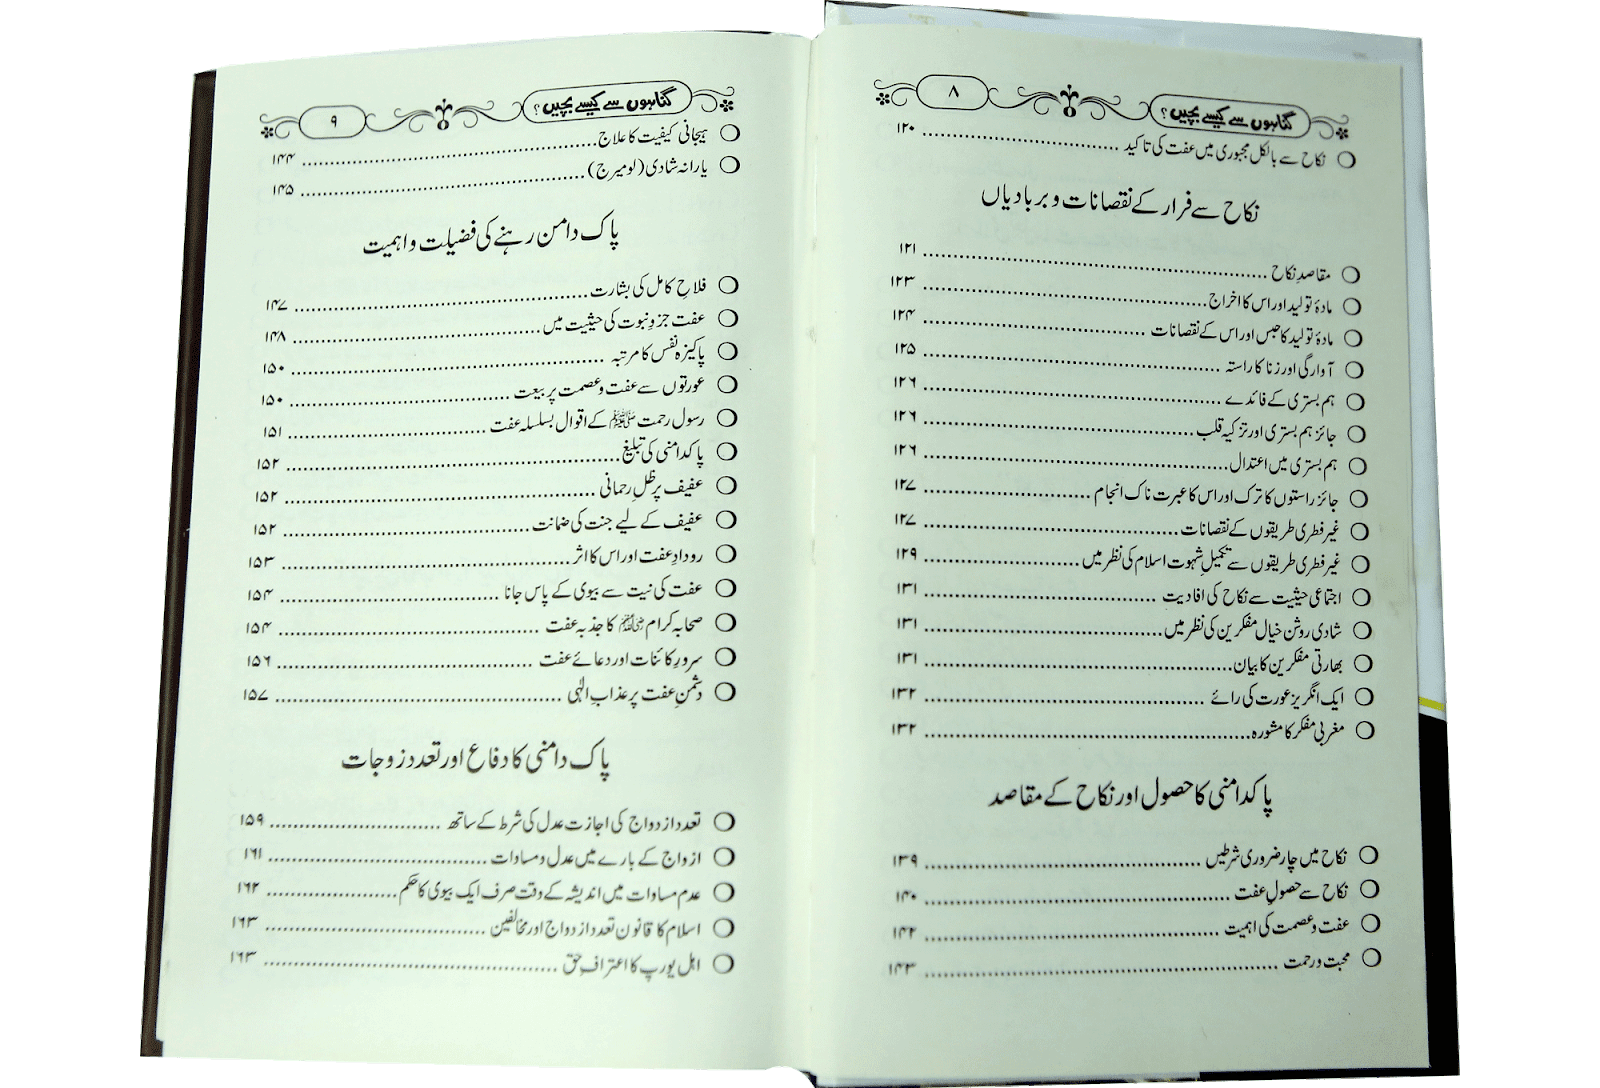 گناہوں سے کیسے بچیں؟ ۸
نکاح سے بالکل مجبوری میں عفت کی تاکید ۱۲۰
نکاح سے فرار کے نقصانات و بربادیاں
مقاصدِ نکاح ۱۲۱
مادۂ تولید اور اس کا اخراج ۱۲۳
مادۂ تولید کا حبس اور اس کے نقصانات ۱۲۴
آوارگی اور زنا کا راستہ ۱۲۵
ہم بستری کے فائدے ۱۲۶
جائز ہم بستری اور تزکیہ قلب ۱۲۶
ہم بستری میں اعتدال ۱۲۶
جائز راستوں کا ترک اور اس کا عبرت ناک انجام ۱۲۷
غیر فطری طریقوں کے نقصانات ۱۲۷
غیر فطری طریقوں سے تکمیلِ شہوت اسلام کی نظر میں ۱۲۹
اجتماعی حیثیت سے نکاح کی افادیت ۱۳۱
شادی روشن خیال مفکرین کی نظر میں ۱۳۱
بھارتی مفکرین کا بیان ۱۳۱
ایک انگریز عورت کی رائے ۱۳۲
مغربی مفکر کا مشورہ ۱۳۲
پاکدامنی کا حصول اور نکاح کے مقاصد
نکاح میں چار ضروری شرطیں ۱۳۹
نکاح سے حصولِ عفت ۱۴۰
عفت و عصمت کی اہمیت ۱۴۲
محبت و رحمت ۱۴۳
گناہوں سے کیسے بچیں؟ ۹
ہیجانی کیفیت کا علاج ۱۴۴
یارانہ شادی (لو میرج) ۱۴۵
پاک دامن رہنے کی فضیلت و اہمیت
فلاحِ کامل کی بشارت ۱۴۷
عفت جزوِ نبوت کی حیثیت میں ۱۴۸
پاکیزہ نفس کا مرتبہ ۱۵۰
عورتوں سے عفت و عصمت پر بیعت ۱۵۰
رسول رحمت ﷺ کے اقوال بسلسلہ عفت ۱۵۱
پاکدامنی کی تبلیغ ۱۵۲
عفیف پر ظلِ رحمانی ۱۵۲
عفیف کے لیے جنت کی ضمانت ۱۵۲
رودادِ عفت اور اس کا اثر ۱۵۳
عفت کی نیت سے بیوی کے پاس جانا ۱۵۴
صحابہ کرام کا جذبہ عفت ۱۵۴
سرورِ کائنات اور دعائے عفت ۱۵۶
دشمنِ عفت پر عذابِ الٰہی ۱۵۷
پاک دامنی کا دفاع اور تعدد زوجات
تعدد ازدواج کی اجازت عدل کی شرط کے ساتھ ۱۵۹
ازواج کے بارے میں عدل و مساوات ۱۶۱
عدم مساوات میں اندیشہ کے وقت صرف ایک بیوی کا حکم ۱۶۲
اسلام کا قانون تعدد ازدواج اور مخالفین ۱۶۳
اہل یورپ کا اعترافِ حق ۱۶۳